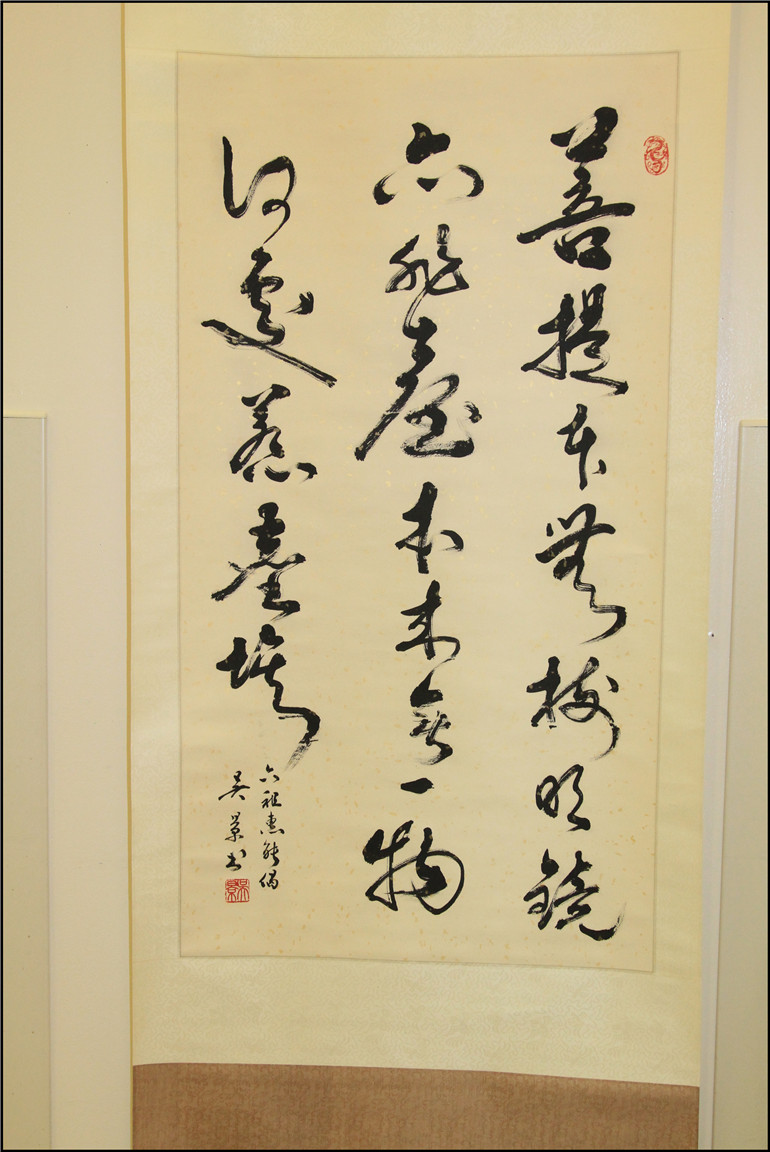 菩提本無樹明鏡
亦非臺本来無一物
何處惹塵埃
六祖惠能偈
吳景书